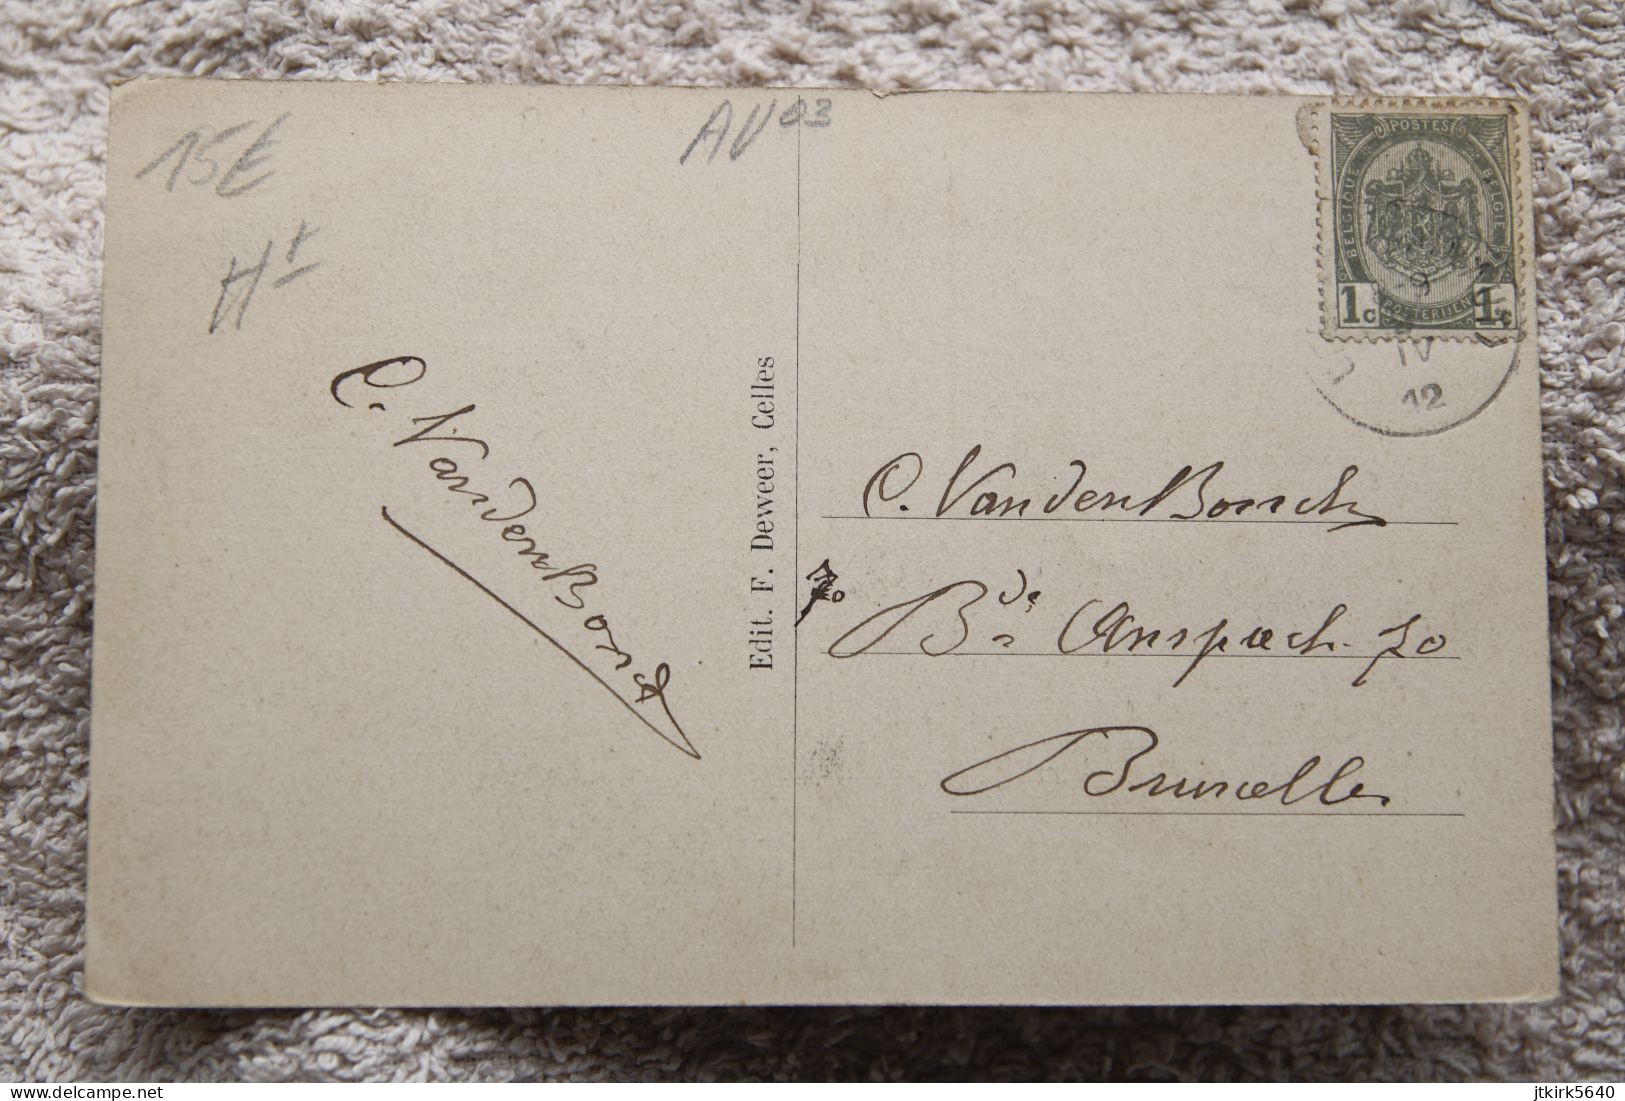 15€
Ht
AV 03
C. VandenBosch
Edit. F. Deweer, Celles
POSTES
BELGIQUE
BELGIË
POSTERIJEN
1c
1c
9
IV
12
C. VandenBosch
70
Bd Anspach. 70
Bruxelles
delcampe.net
jtkirk5640